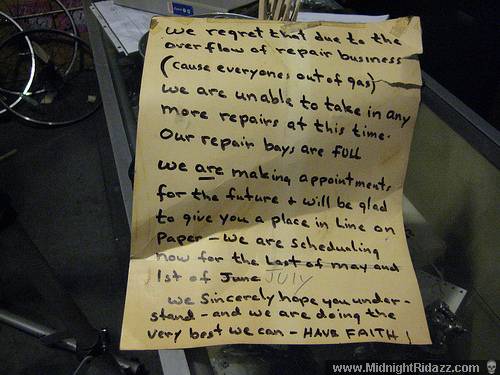 we regret that due to the
overflow of repair business
(cause everyones out of gas)
we are unable to take in any
more repairs at this time.
Our repair bays are full
we are making appointments
for the future + will be glad
to give you a place in line on
Paper - we are schedualing
now for the Last of may and
1st of June JULY
we Sincerely hope you under-
stand - and we are doing the
very best we can - HAVE FAITH!
www.MidnightRidazz.com